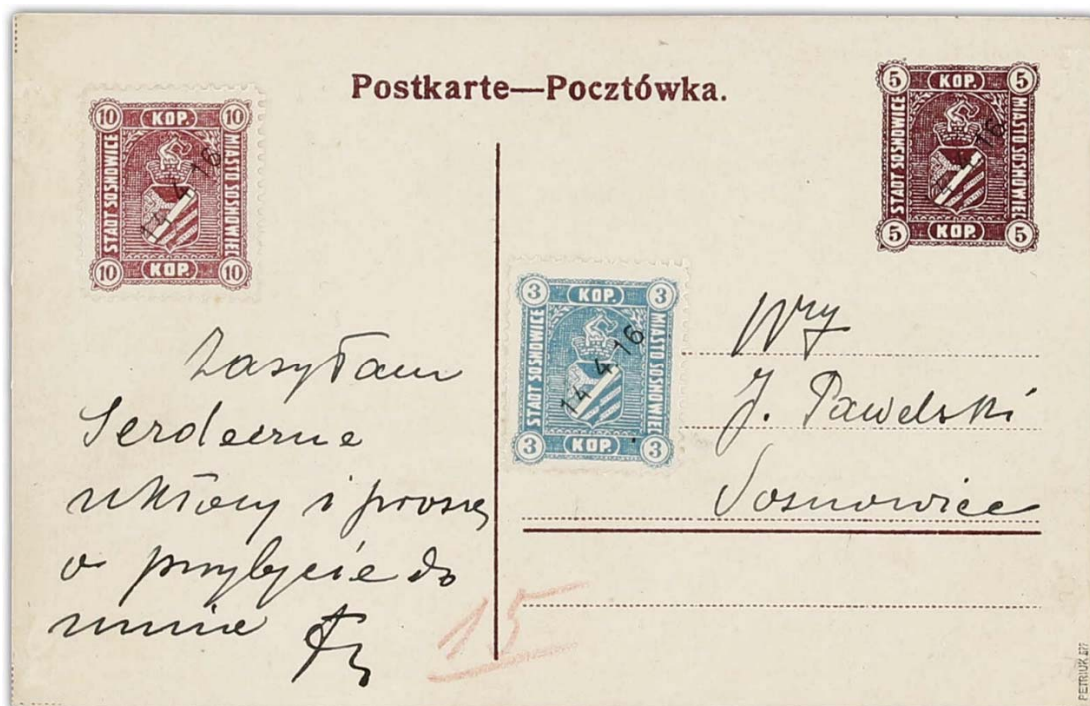 Postkarte—Pocztówka.
10 KOP. 10
STADT SOSNOWICE
MIASTO SOSNOWIEC
14 4 16
10 KOP. 10
5 KOP. 5
STADT SOSNOWICE
MIASTO SOSNOWIEC
14 4 16
5 KOP. 5
3 KOP. 3
STADT SOSNOWICE
MIASTO SOSNOWIEC
14 4 16
3 KOP. 3
Zasyłam
Serdeczne
ukłony i proszę
o przybycie do
mnie
J. Pawelski
Sosnowice
15